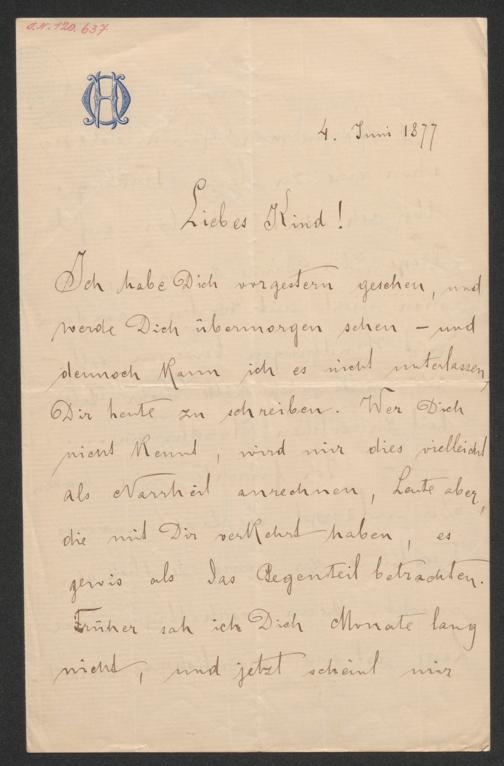 O.N. 120.637
4. Juni 1877
Liebes Kind!
Ich habe Dich vorgestern gesehen, und
werde Dich übermorgen sehen – und
dennoch kann ich es nicht unterlassen,
Dir heute zu schreiben. Wer Dich
nicht kennt, wird mir dies vielleicht
als Narrheit anrechnen, Leute aber,
die mit Dir verkehrt haben, es
gewis als das Gegenteil betrachten.
Früher sah ich Dich Monate lang
nicht, und jetzt scheint mir